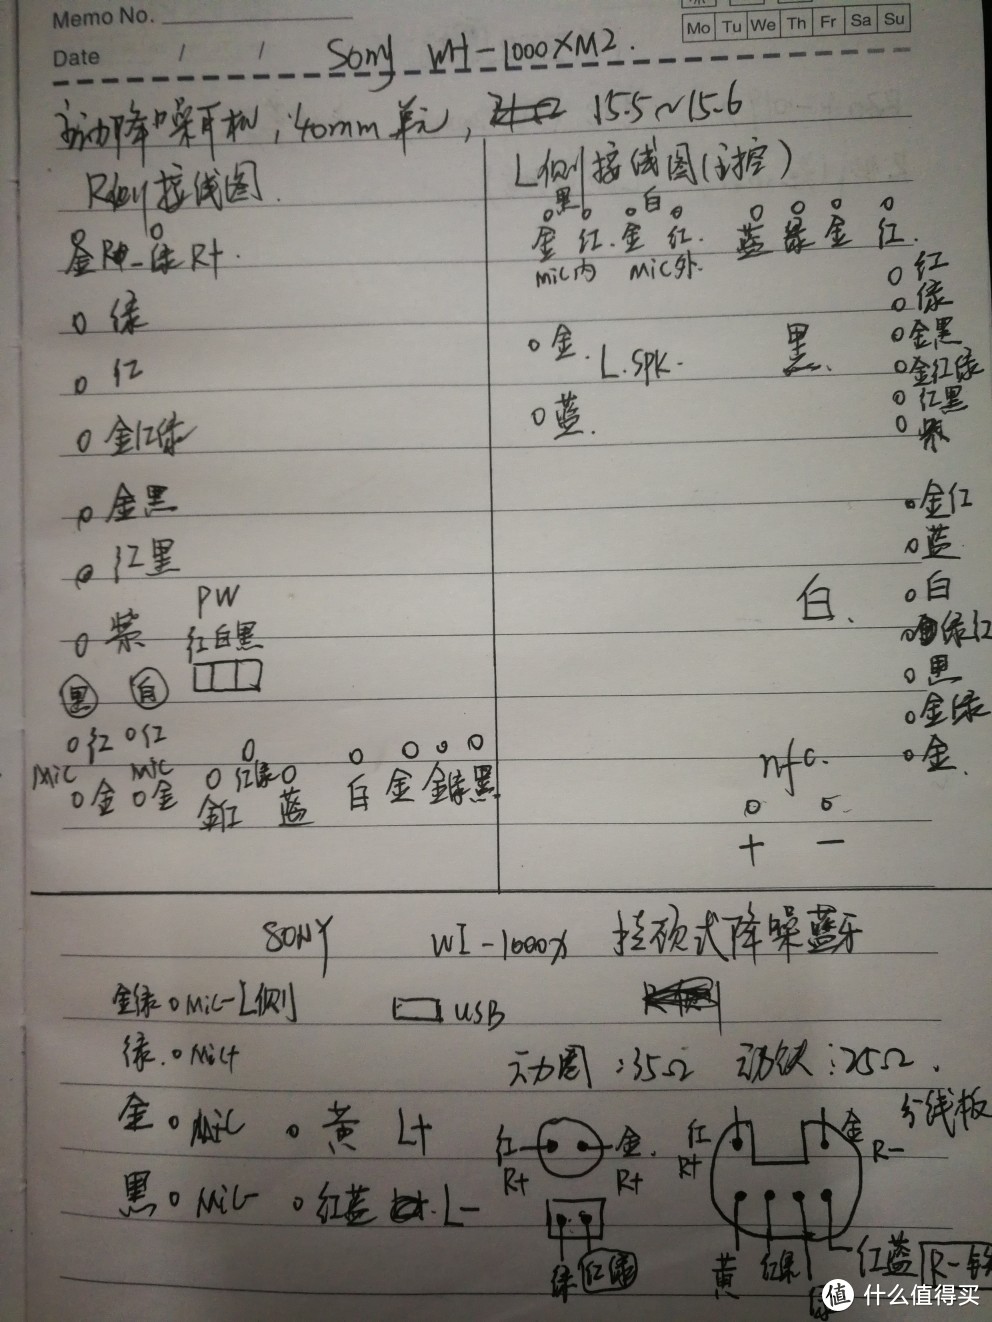 Memo No.
Mo Tu We Th Fr Sa Su
Date / /
Sony WH-1000XM2.
主动降噪耳机, 40mm单元, 15.5~15.6
R侧接线图.
金R- 绿R+.
绿
红
金红绿
金黑
红黑
紫
PW
红白黑
黑 白
红 红
MiC MiC
金 金
红绿
金红 蓝 白 金 金绿 黑
L侧接线图(主控)
黑 白
金 红. 金 红. 蓝 绿 金 红.
MiC内 MiC外.
红
绿
金黑
金红绿
红黑
紫
金. L.SPK. 黑.
蓝.
金红
蓝
白
绿红
黑
金绿
金.
白.
nfc.
+ -
SONY WI-1000X 挂颈式降噪蓝牙
金绿 MiC- L侧
USB
绿. MiC+
动圈:35Ω 动铁:25Ω.
金 MiC 黄 L+
黑 MiC- 红蓝 L-
红 R+ 金. R+
绿 红绿
分线板
红 R+ 金 R-
黄 红绿 绿 红蓝 R-铁
值 什么值得买